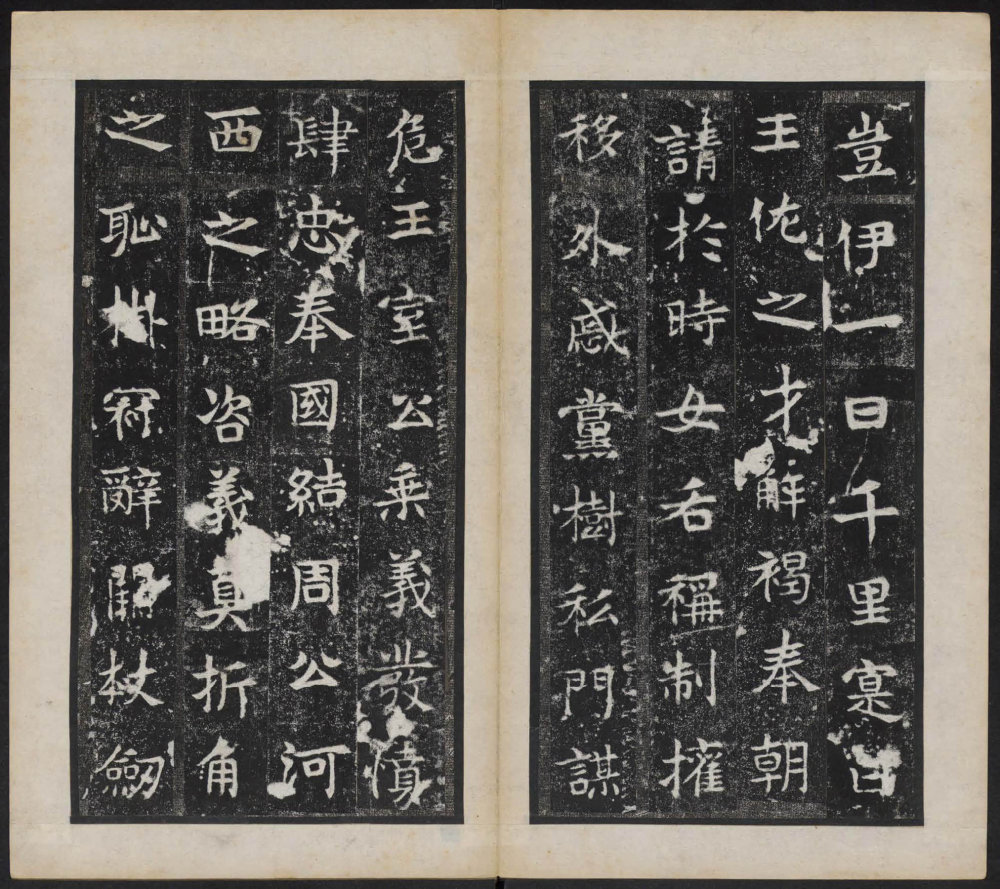 豈伊一日千里寔曰
王佐之才解褐奉朝
請於時女后稱制擁
移外慼黨樹私門謀
危王室公乘義發憤
肆忠奉國結周公河
西之略咨義真折角
之恥掛冠辭闕杖劒